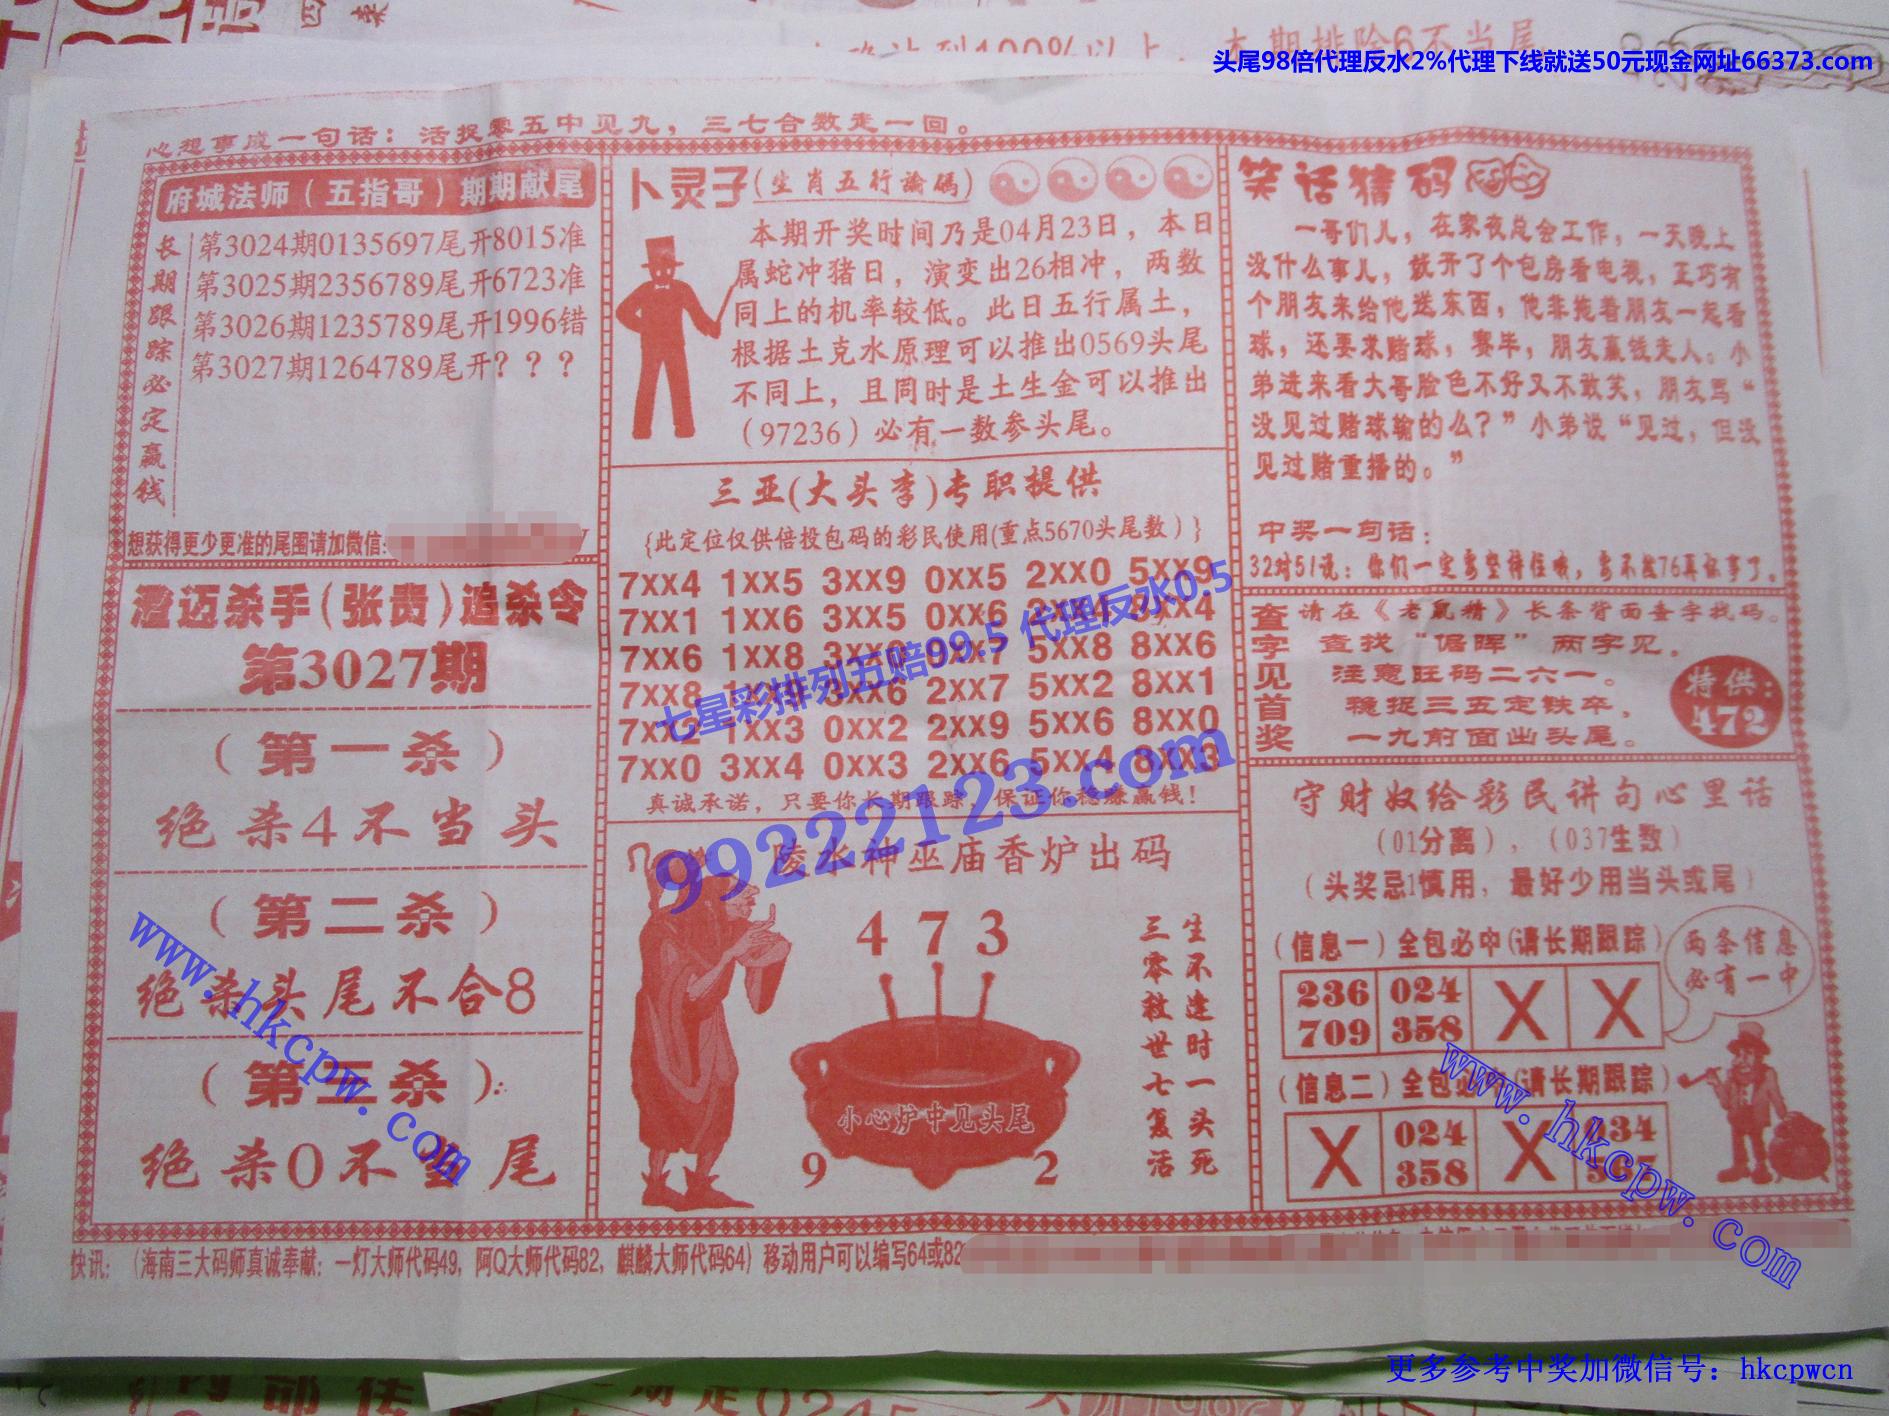 本期排除6不当尾
头尾98倍代理反水2%代理下线就送50元现金网址66373.com
心想事成一句话：活捉零五中见九，三七合数走一回。
府城法师（五指哥）期期献尾
长期跟踪必定赢钱
第3024期0135697尾开8015准
第3025期2356789尾开6723准
第3026期1235789尾开1996错
第3027期1264789尾开？？？
想获得更少更准的尾围请加微信:
澄迈杀手(张贵)追杀令
第3027期
（第一杀）
绝杀4不当头
（第二杀）
绝杀头尾不合8
（第三杀）
绝杀0不当尾
卜灵子(生肖五行论码)
本期开奖时间乃是04月23日，本日
属蛇冲猪日，演变出26相冲，两数
同上的机率较低。此日五行属土，
根据土克水原理可以推出0569头尾
不同上，且同时是土生金可以推出
（97236）必有一数参头尾。
三亚(大头李)专职提供
{此定位仅供倍投包码的彩民使用(重点5670头尾数）}
7xx4 1xx5 3xx9 0xx5 2xx0 5xx9
7xx1 1xx6 3xx5 0xx6 2xx4 8xx4
7xx6 1xx8 3xx0 0xx7 5xx8 8xx6
7xx8 1xx0 3xx6 2xx7 5xx2 8xx1
7xx2 1xx3 0xx2 2xx9 5xx6 8xx0
7xx0 3xx4 0xx3 2xx6 5xx4 8xx3
真诚承诺，只要你长期跟踪，保证你稳赚赢钱！
七星彩排列五赔99.5 代理反水0.5
99222123.com
陵水神巫庙香炉出码
4 7 3
小心炉中见头尾
9 2
生不逢时一头死
三零救世七复活
笑话猜码
一哥们儿，在家夜总会工作，一天晚上
没什么事儿，就开了个包房看电视，正巧有
个朋友来给他送东西，他非拖着朋友一起看
球，还要求赌球，赛毕，朋友赢钱走人。小
弟进来看大哥脸色不好又不敢笑，朋友骂“
没见过赌球输的么？”小弟说“见过，但没
见过赌重播的。”
中奖一句话：
32对51说：你们一定要坚持住哦，要不然76真坏事了。
查字见首奖
请在《老鼠精》长条背面查字找码。
查找“倨晖”两字见。
注意旺码二六一。
稳捉三五定铁卒，
一九前面出头尾。
特供：
472
守财奴给彩民讲句心里话
（01分离），（037生数）
（头奖忌1慎用，最好少用当头或尾）
（信息一）全包必中(请长期跟踪)
236 024 X X
709 358
两条信息
必有一中
（信息二）全包必中(请长期跟踪)
X 024 X 134
358 567
www.hkcpw.com
www.hkcpw.com
快讯：（海南三大码师真诚奉献：一灯大师代码49，阿Q大师代码82，麒麟大师代码64）移动用户可以编写64或82
更多参考中奖加微信号：hkcpwcn